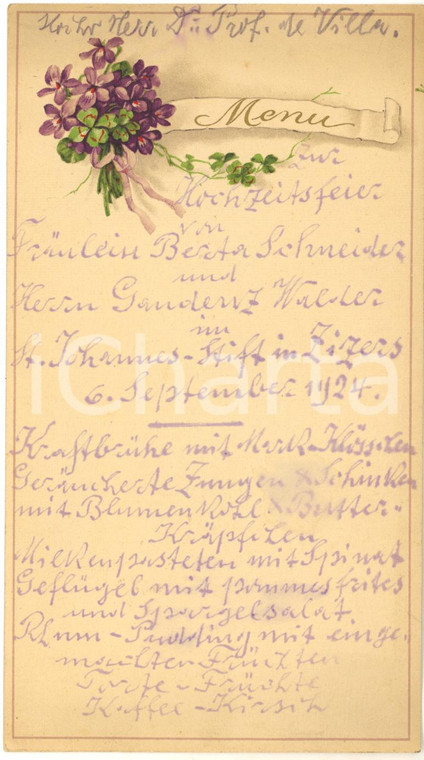 Herr Dr. Prof. de Villa.
Menu
zur
Hochzeitsfeier
von
Fräulein Berta Schneider
und
Herrn Gaudenz Walder
im
St. Johannes-Stift in Zizers
6. September 1924.
iCharta
Kraftbrühe mit Mark-Klösschen
Geräucherte Zungen & Schinken
mit Blumenkohl & Butter-
Kräpfchen
Milkenpasteten mit Spinat
Geflügel mit pommes frites
und Spargelsalat
Rhum-Pudding mit einge-
machten Früchten
Torte - Früchte
Kaffee - Kirsch